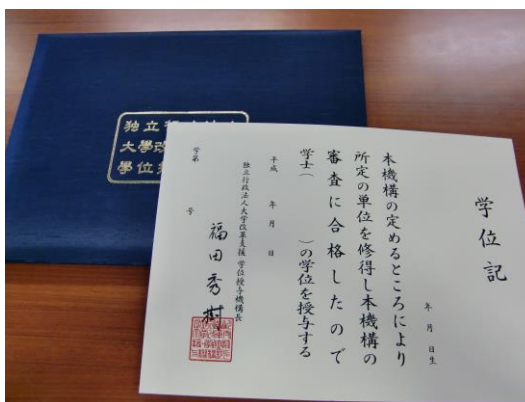 独立行
大學改
學位授
学位記
年 月 日生
本機構の定めるところにより
所定の単位を修得し本機構の
審査に合格したので
学士( )の学位を授与する
平成 年 月 日
独立行政法人大学改革支援・学位授与機構長
福田秀樹
学第 号